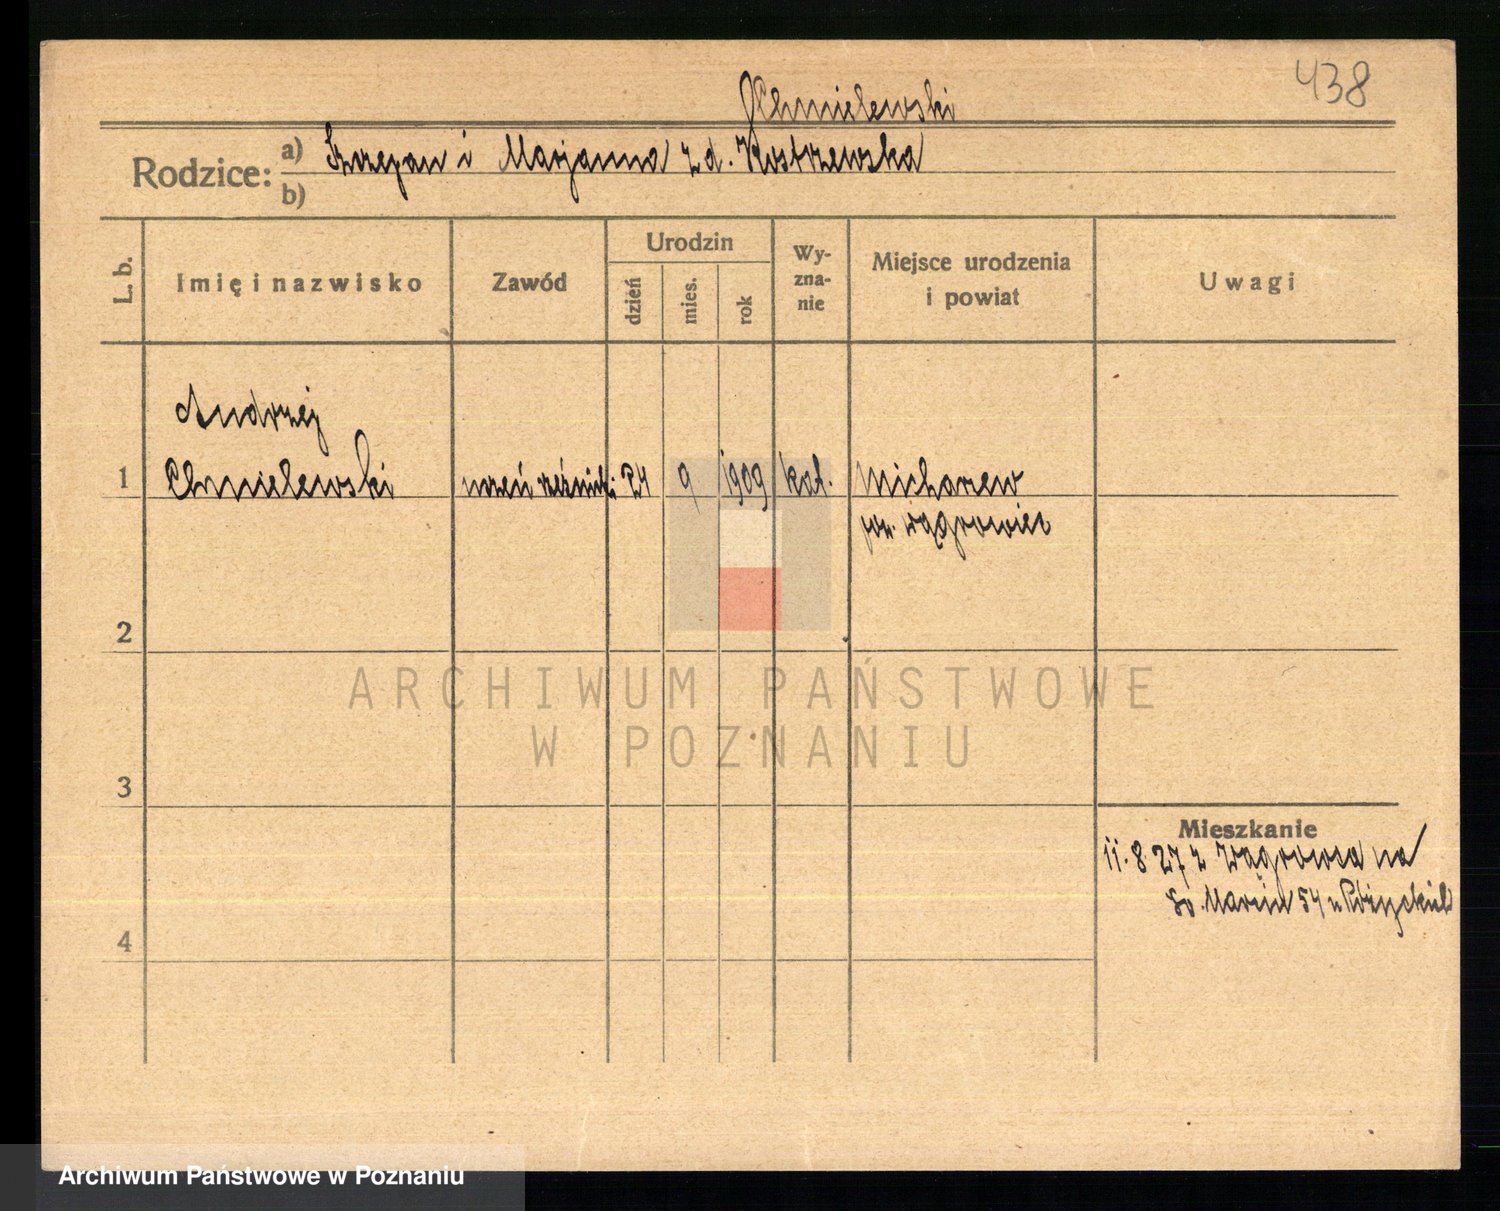 438
Chmielewski
Rodzice: a) Szczepan i Marjanna z d. Kostrzewska
b)
L. b.
Imię i nazwisko
Zawód
Urodzin
dzień
mies.
rok
Wy-
zna-
nie
Miejsce urodzenia
i powiat
Uwagi
Andrzej
1 Chmielewski uczeń rzeźnicki 24 9 1909 kat. Micharzew
pow. Wągrowiec
2
ARCHIWUM PAŃSTWOWE
W POZNANIU
3
Mieszkanie
11.8 27 z Wągrowca na
Św. Marcin 54 u
4
Archiwum Państwowe w Poznaniu